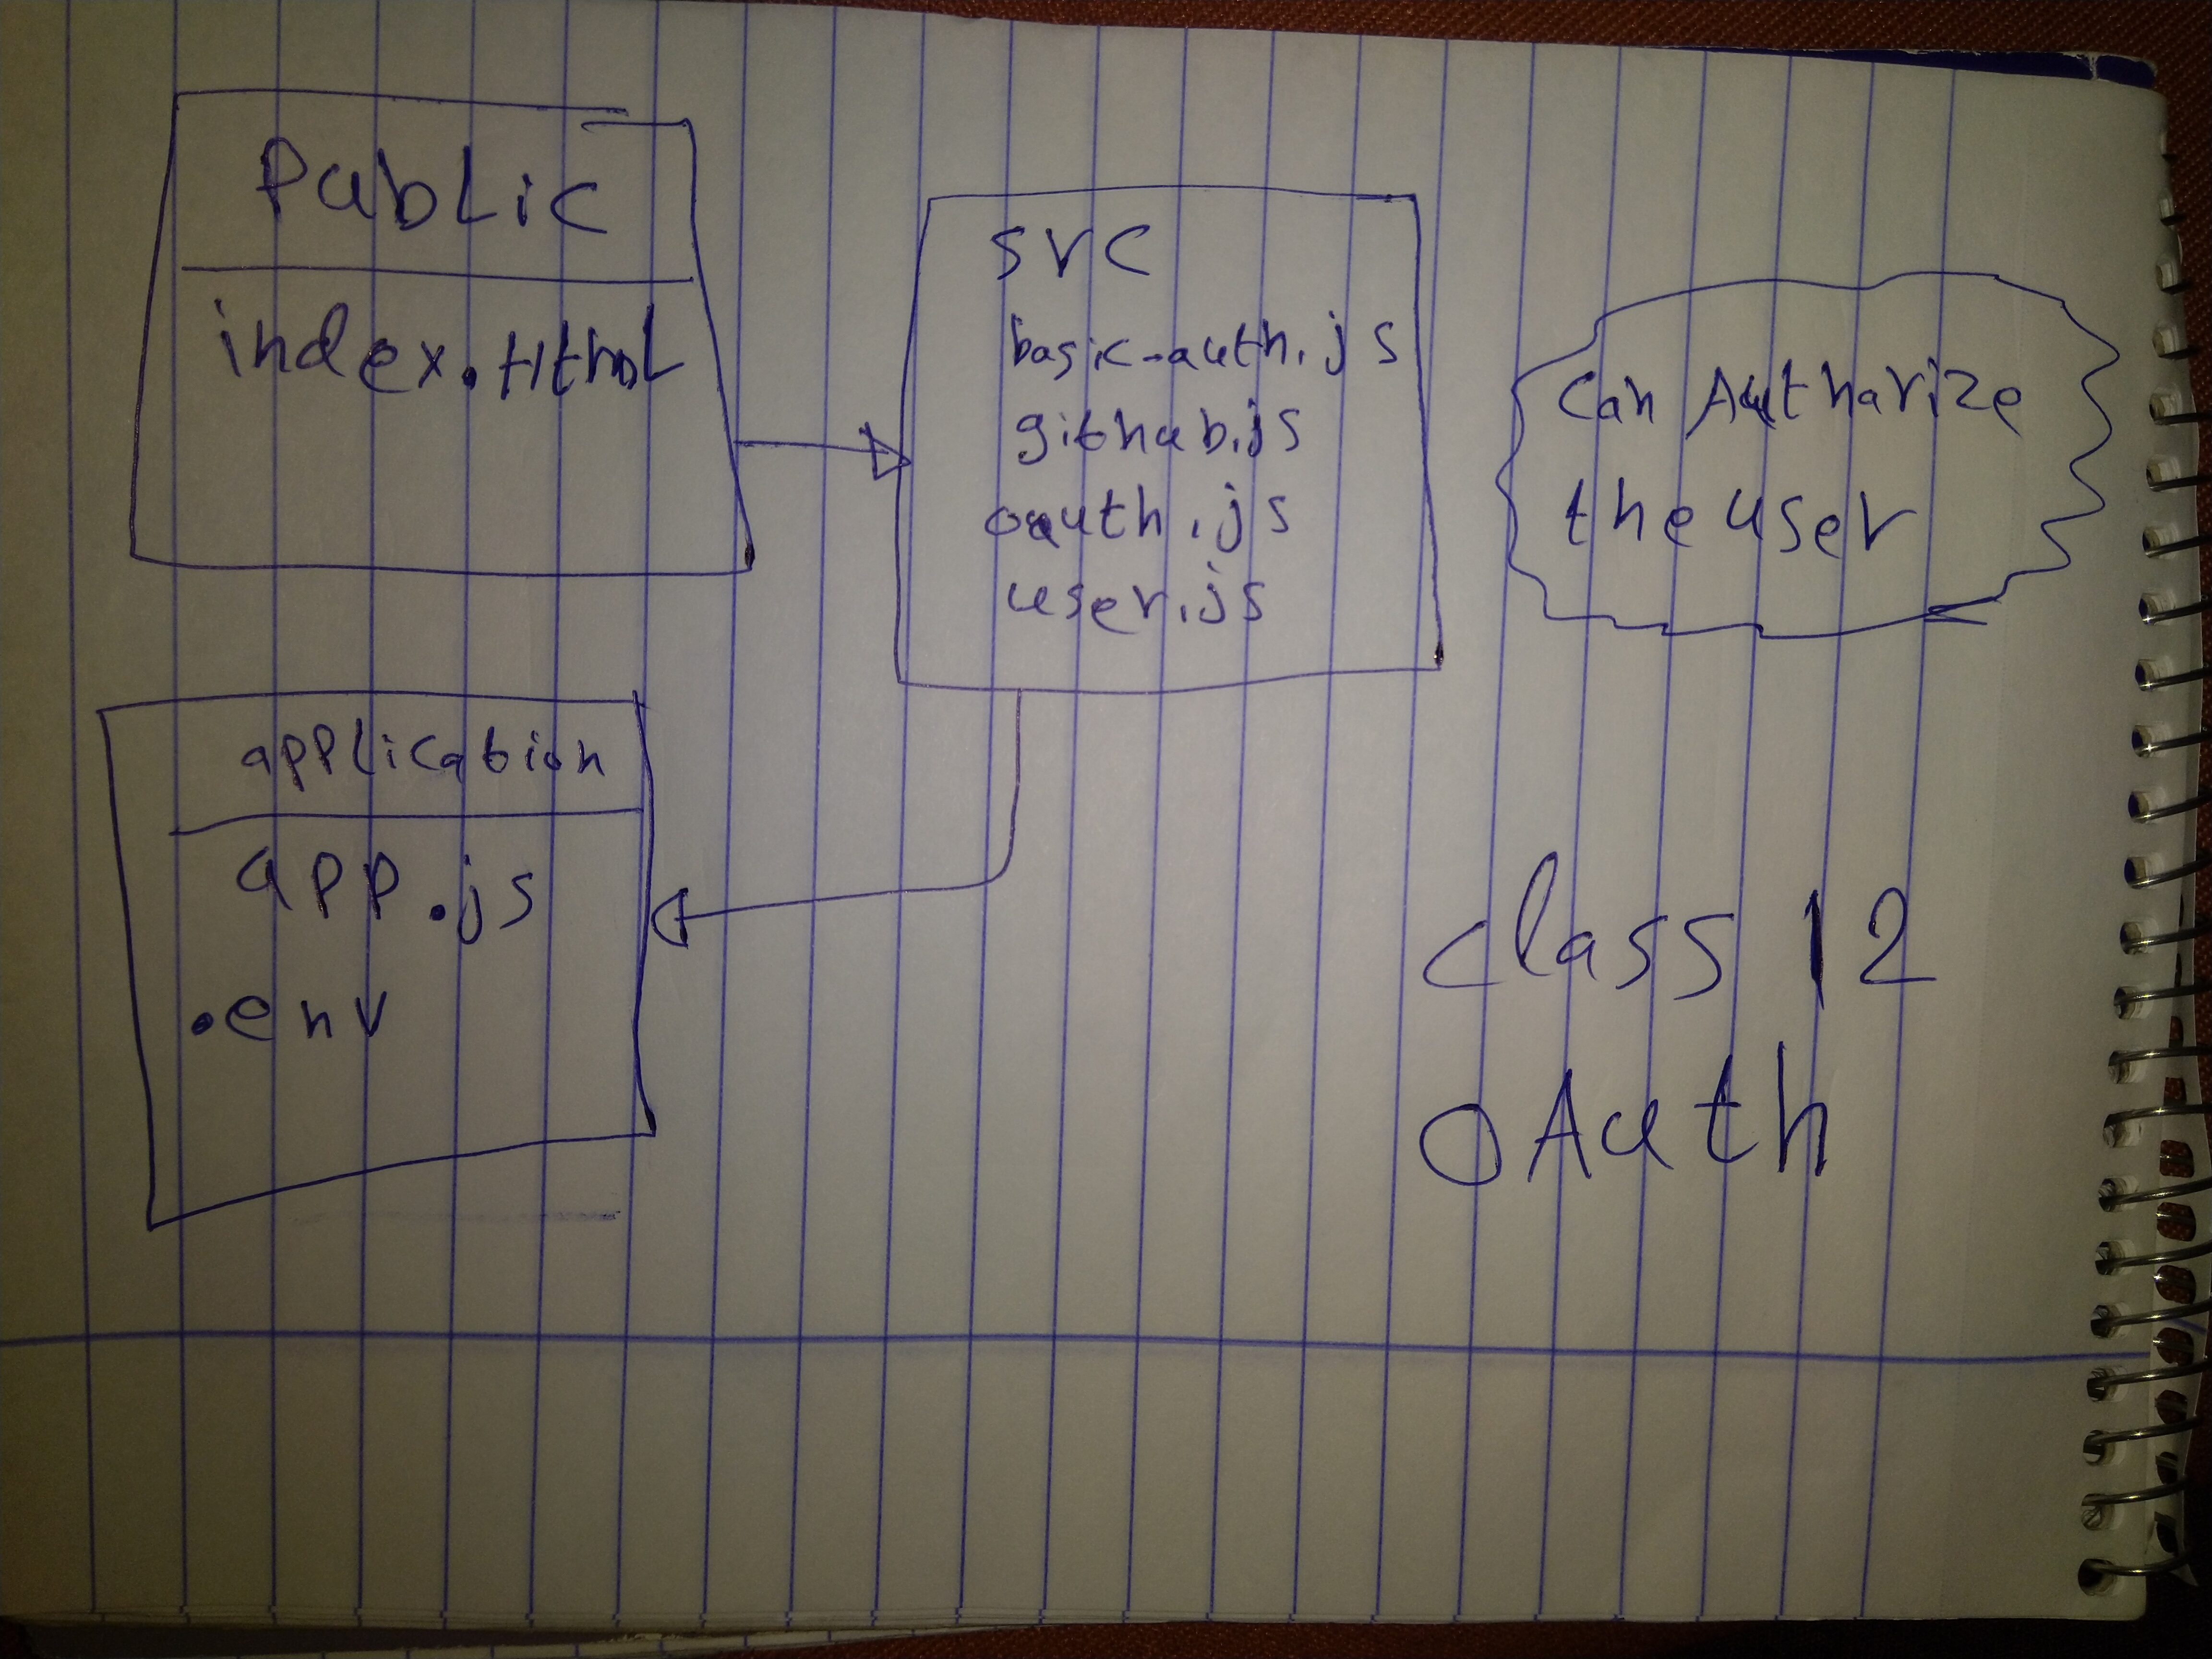 PubLic
index.html
SVC
basic-auth.js
github.js
oauth.js
user.js
Can Autharize
the user
application
app.js
.env
Class 12
OAuth